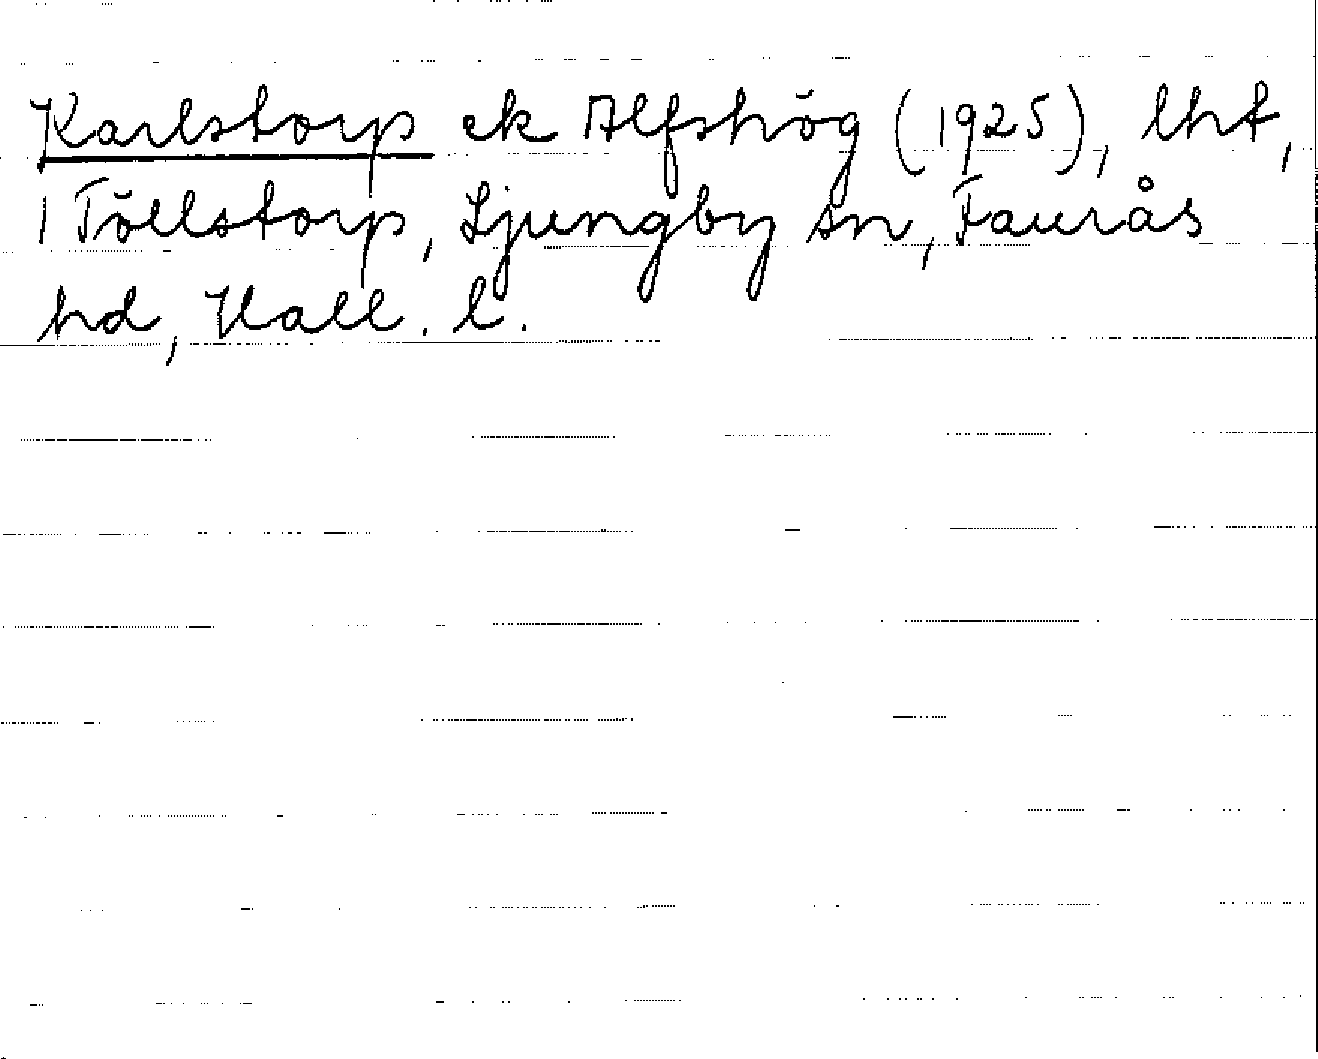 Karlstorp ek Alfshög (1925), lht,
1 Töllstorp, Ljungby sn, Faurås
hd, Hall. l.